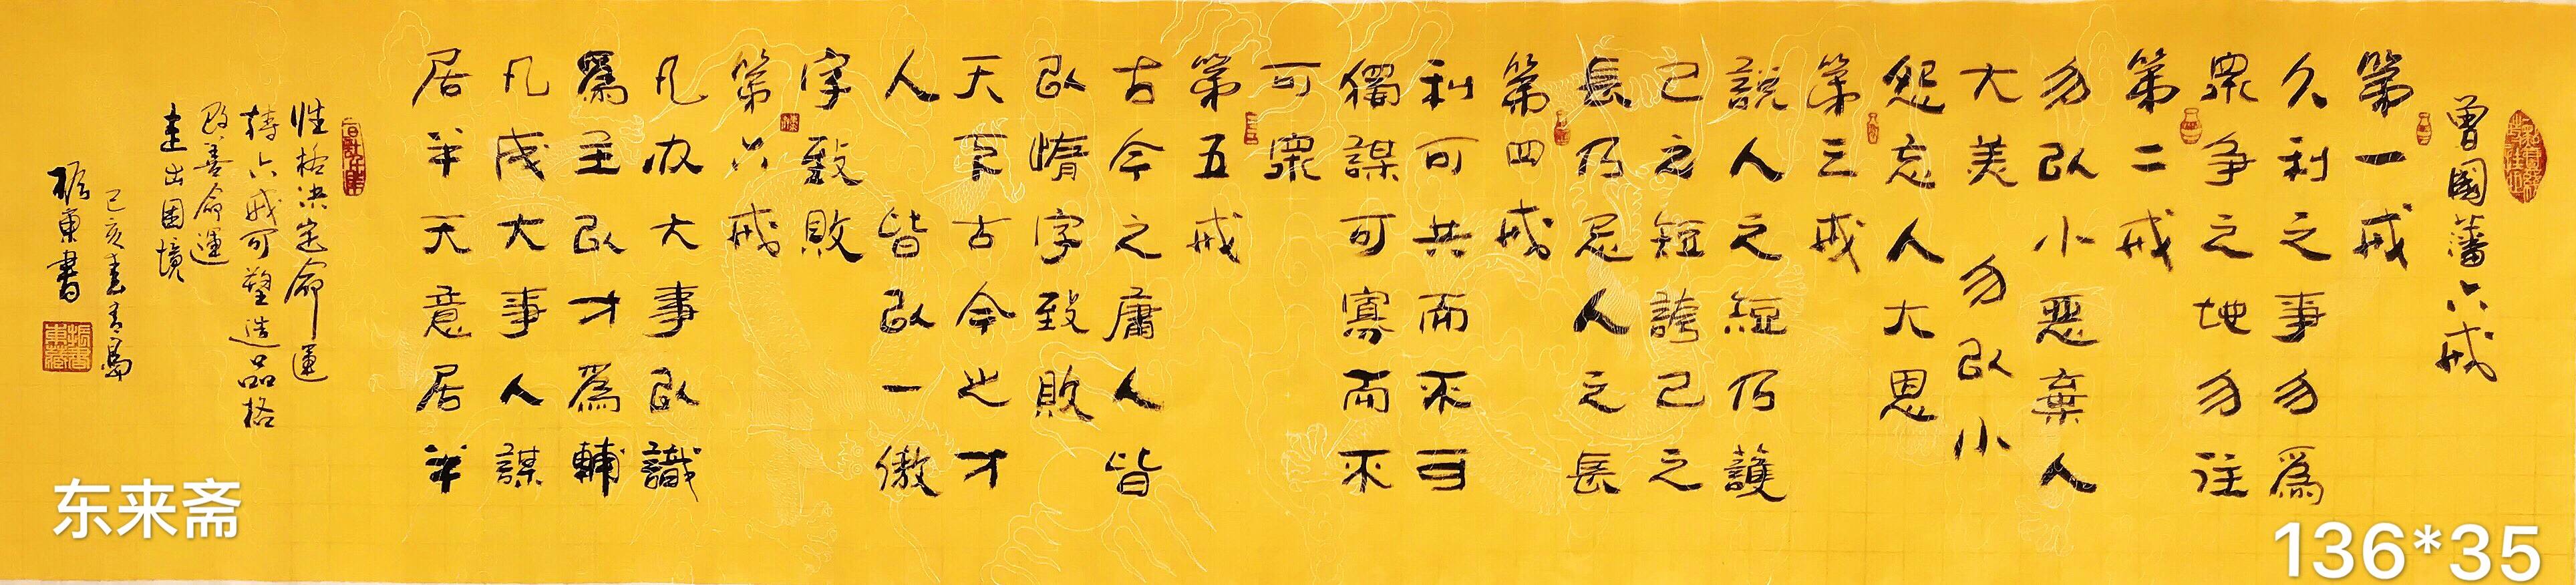 曾國藩六戒
第一戒
久利之事勿爲
眾争之地勿往
第二戒
勿以小惡棄人
大美勿以小
怨忘人大恩
第三戒
說人之短乃護
己之短誇己之
長乃忌人之長
第四戒
利可共而不可
獨謀可寡而不
可眾
第五戒
古今之庸人皆
以惰字致敗
天下古今之才
人皆以一傲
字致敗
第六戒
凡办大事以識
爲主以才爲輔
凡成大事人謀
居半天意居半
性格决定命運
持六戒可塑造品格
改善命運
走出困境
己亥春青島
振東書
东来斋
136*35